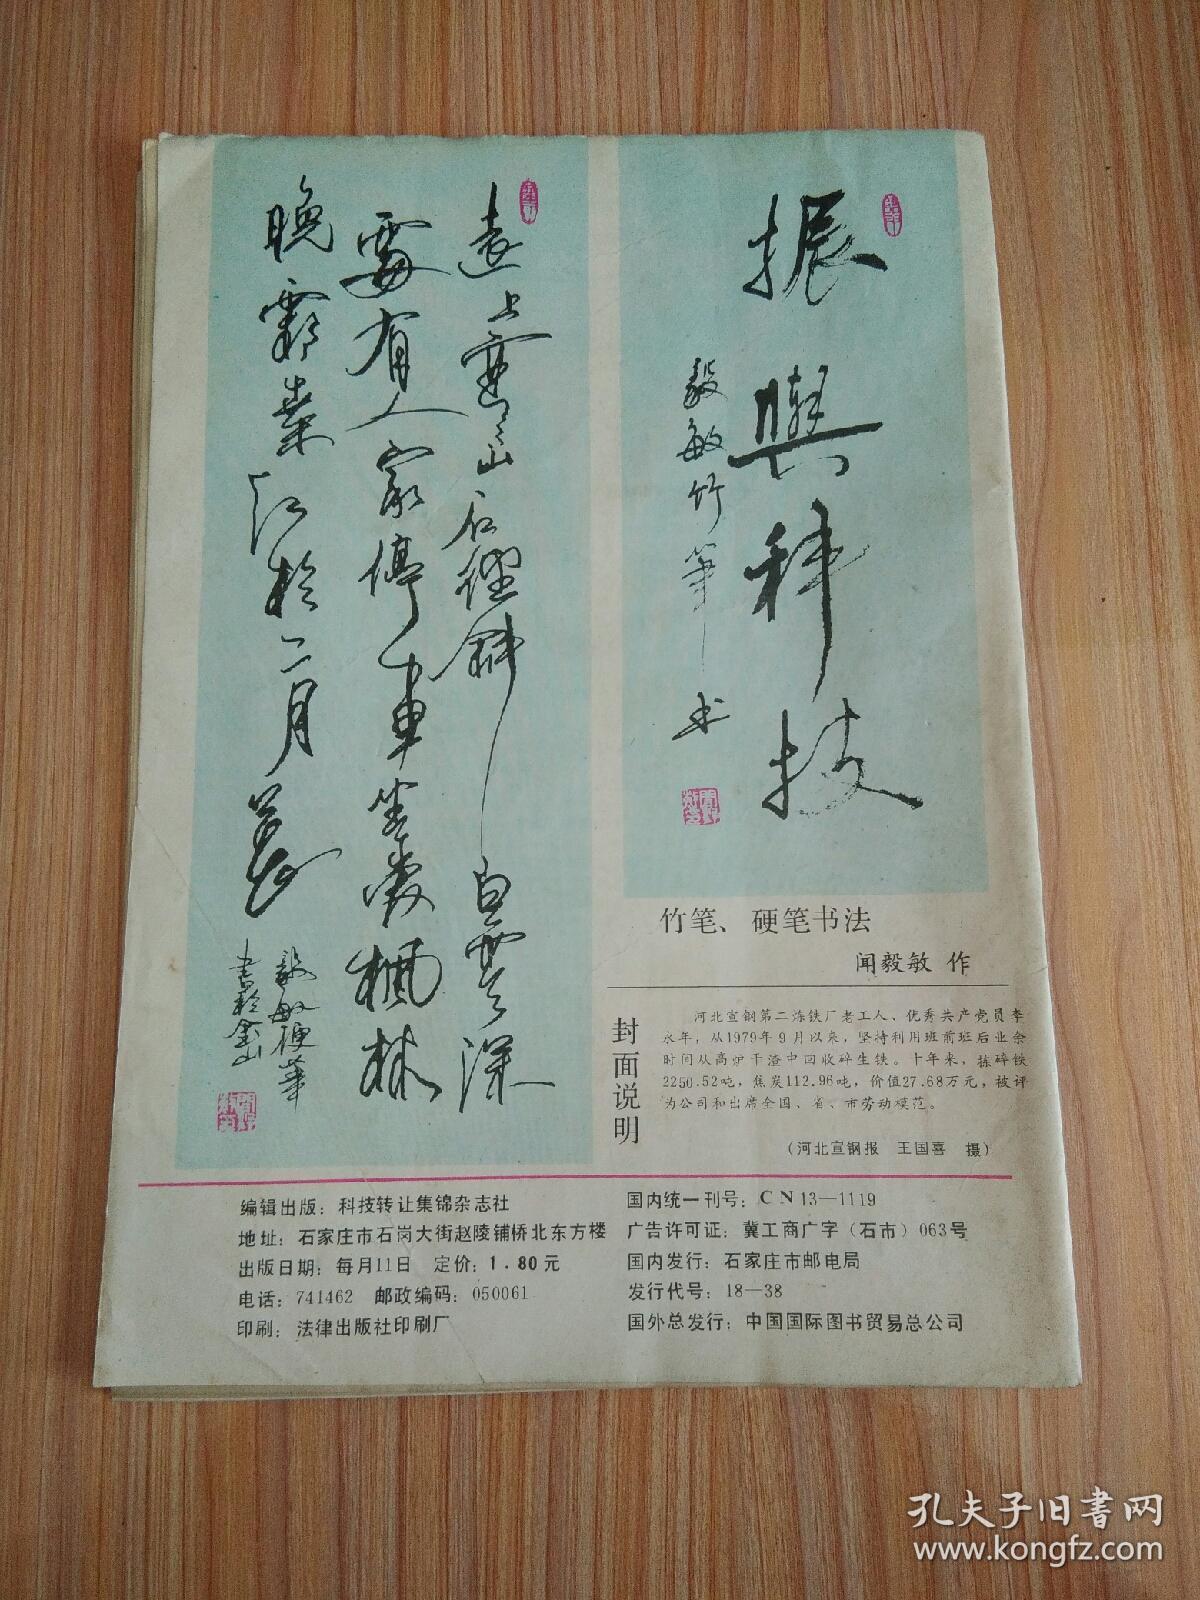 振興科技
毅敏竹筆书
遠上寒山石徑斜白雲深
處有人家停車坐愛楓林
晚霜葉红於二月花
毅敏硬筆
書於金山
竹笔、硬笔书法
闻毅敏 作
封面说明
河北宣钢第二炼铁厂老工人、优秀共产党员李
永年，从1979年9月以来，坚持利用班前班后业余
时间从高炉干渣中回收碎生铁。十年来，拣碎铁
2250.52吨，焦炭112.96吨，价值27.68万元，被评
为公司和出席全国、省、市劳动模范。
（河北宣钢报 王国喜 摄）
编辑出版：科技转让集锦杂志社
地址：石家庄市石岗大街赵陵铺桥北东方楼
出版日期：每月11日 定价：1.80元
电话：741462 邮政编码：050061
印刷：法律出版社印刷厂
国内统一刊号：CN13—1119
广告许可证：冀工商广字（石市）063号
国内发行：石家庄市邮电局
发行代号：18—38
国外总发行：中国国际图书贸易总公司
孔夫子旧书网
www.kongfz.com